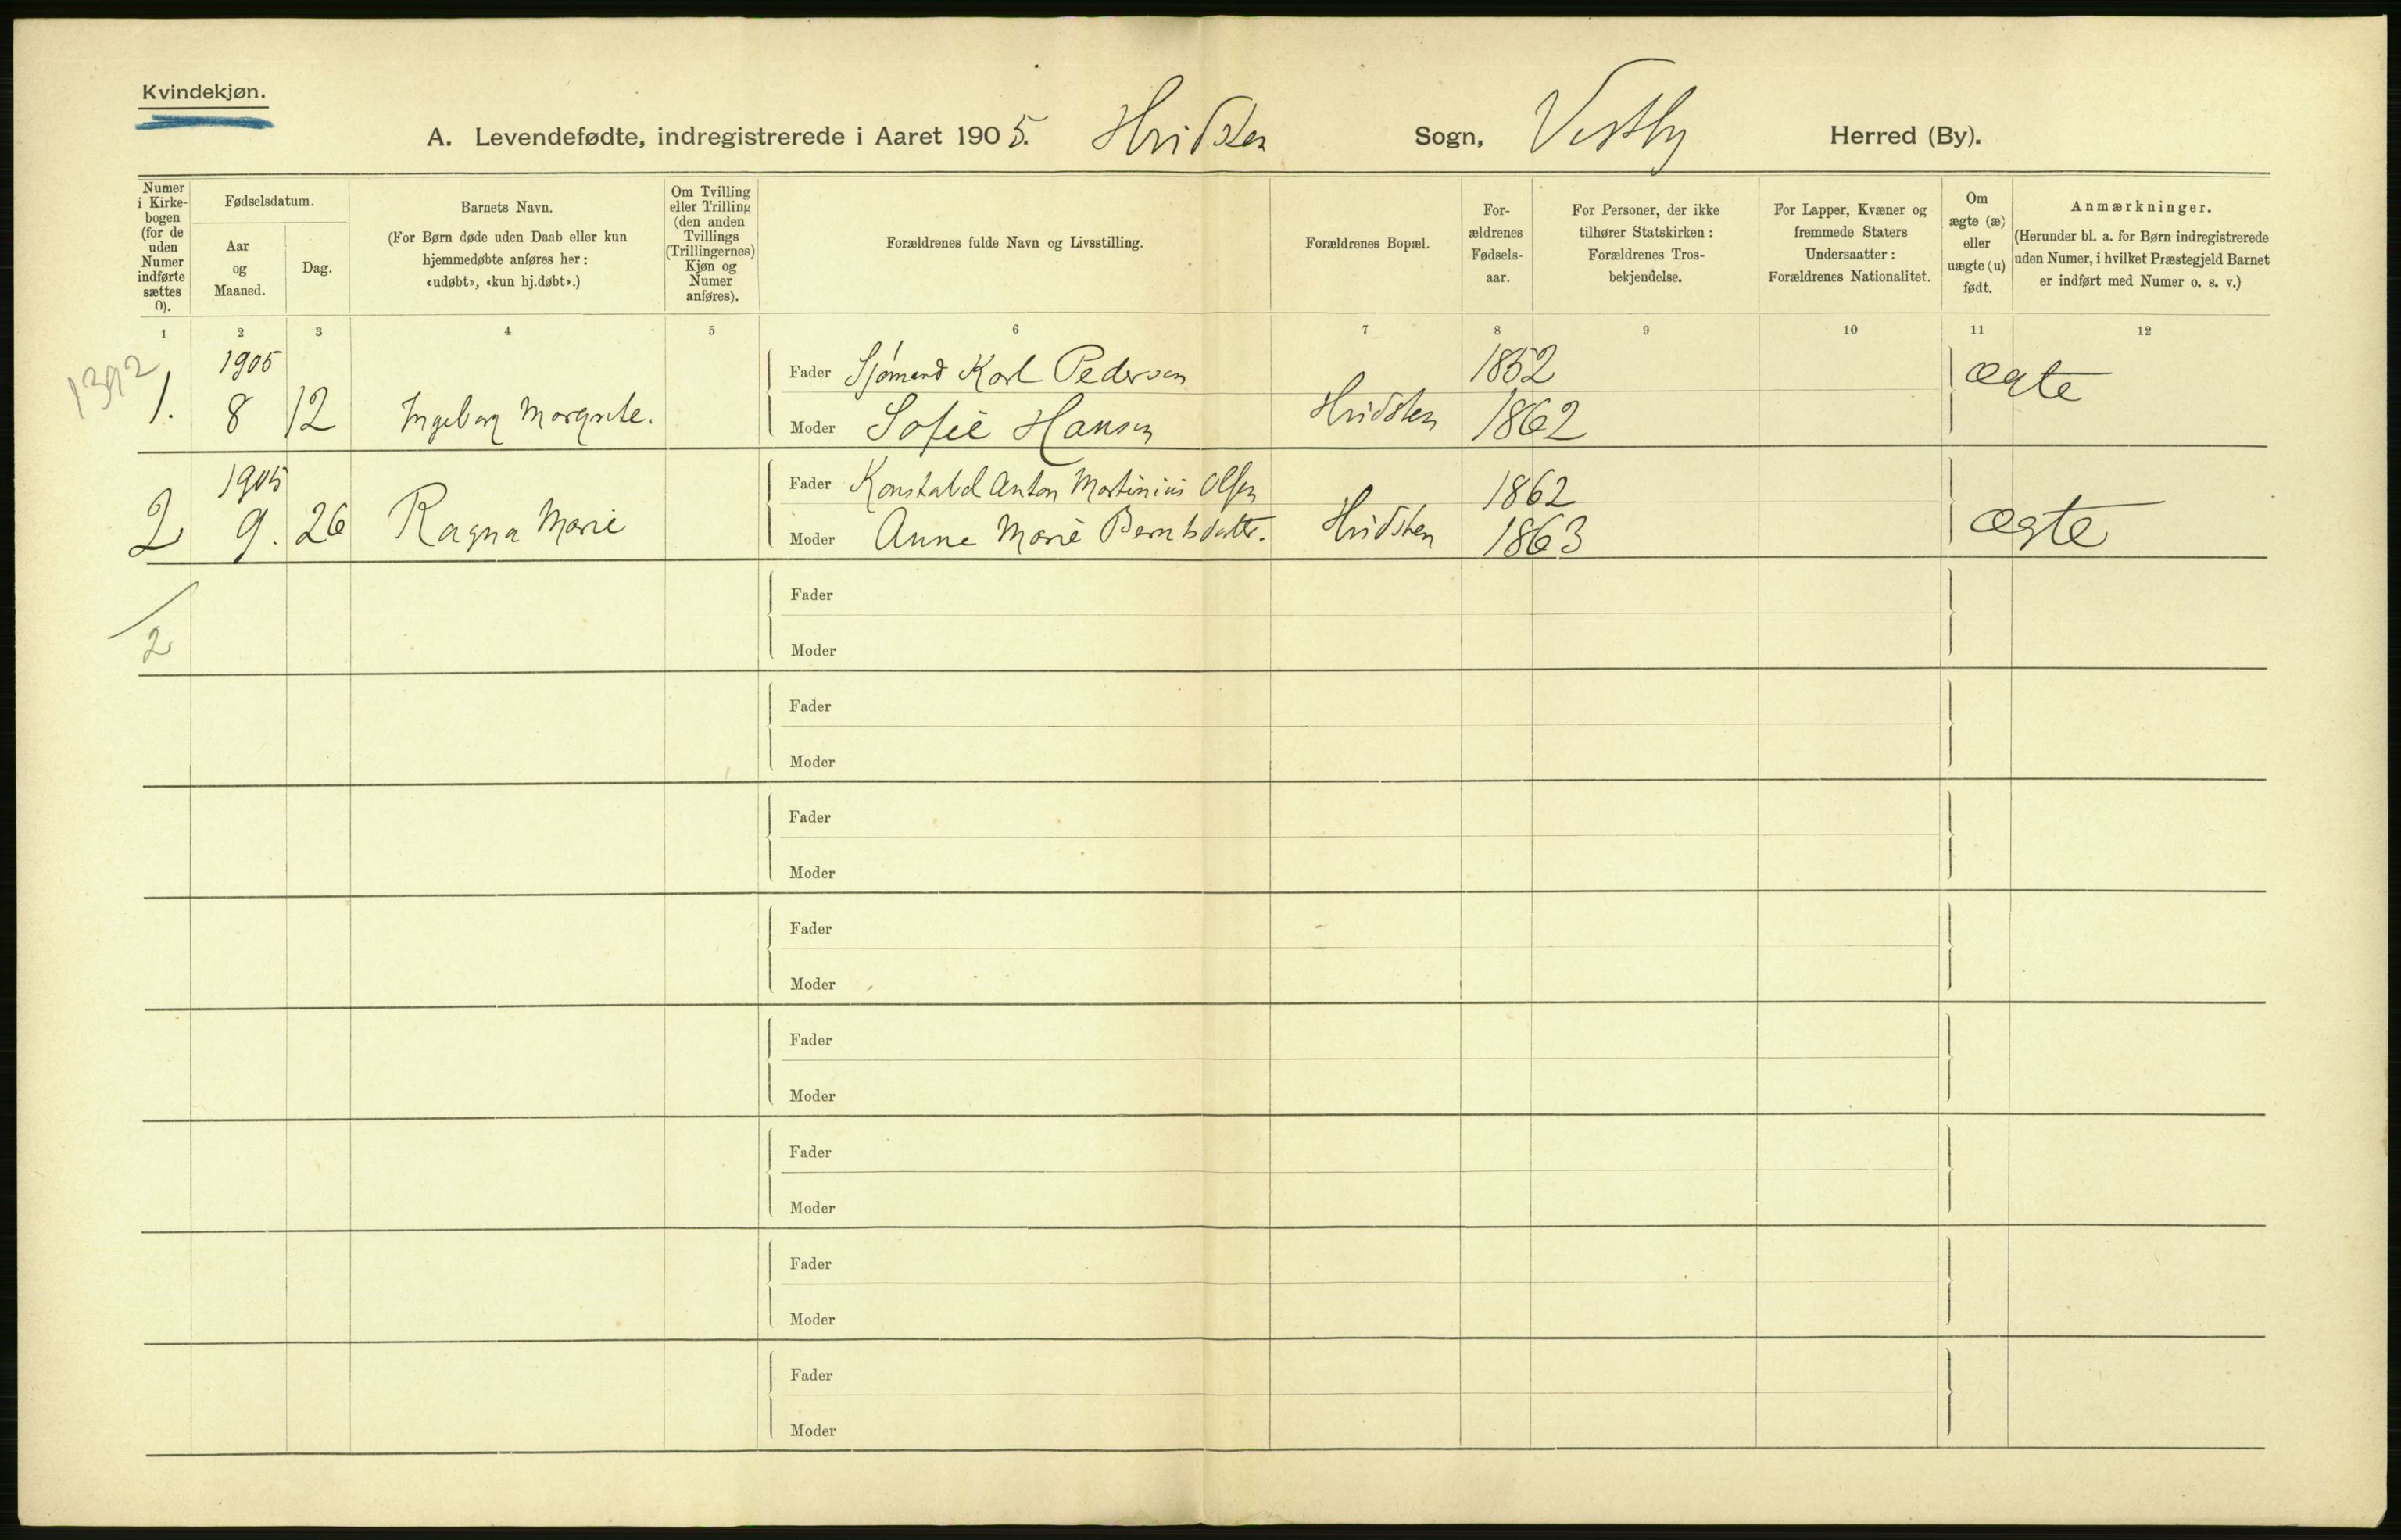 Kvindekjøn.
A. Levendefødte, indregistrerede i Aaret 1905. Hvidsten Sogn, Vestby Herred (By).
Numer i Kirkebogen (for de uden Numer indførte sættes 0).
Fødselsdatum.
Aar og Maaned.
Dag.
Barnets Navn.
(For Børn døde uden Daab eller kun hjemmedøbte anføres her: «udøbt», «kun hj.døbt».)
Om Tvilling eller Trilling (den anden Tvillings (Trillingernes) Kjøn og Numer anføres).
Forældrenes fulde Navn og Livsstilling.
Forældrenes Bopæl.
For-ældrenes Fødsels-aar.
For Personer, der ikke tilhører Statskirken: Forældrenes Tros-bekjendelse.
For Lapper, Kvæner og fremmede Staters Undersaatter: Forældrenes Nationalitet.
Om ægte (æ) eller uægte (u) født.
Anmærkninger.
(Herunder bl. a. for Børn indregistrerede uden Numer, i hvilket Præstegjeld Barnet er indført med Numer o. s. v.)
1 2 3 4 5 6 7 8 9 10 11 12
1392
1905
Fader Sjømand Karl Pedersen 1852
1. 8 12 Ingeborg Margrete. Hvidsten ægte
Moder Sofie Hansen 1862
1905
Fader Konstabel Anton Martinius Olsen 1862
2 9. 26 Ragna Marie Hvidsten ægte
Moder Anne Marie Berntsdatter. 1863
2
Fader
Moder
Fader
Moder
Fader
Moder
Fader
Moder
Fader
Moder
Fader
Moder
Fader
Moder
Fader
Moder